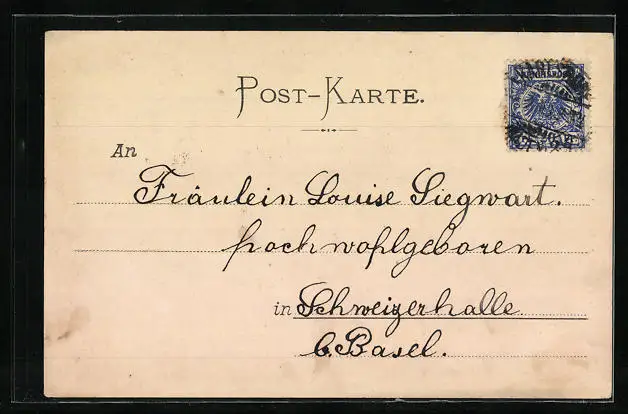 POST-KARTE.
An
Fräulein Louise Siegwart.
hochwohlgeboren
in Schweizerhalle
b. Basel.